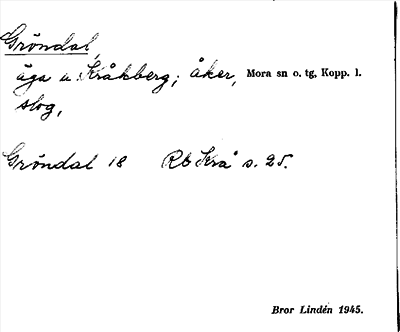 Gröndal,
äga u. Kråkberg; åker, Mora sn o. tg, Kopp. l.
skog,
Gröndal 18 Rb Krå s. 25.
Bror Lindén 1945.